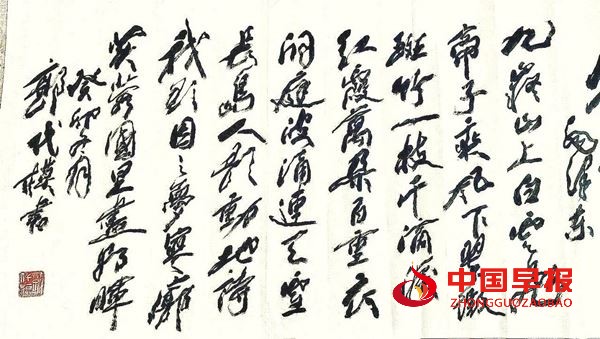 毛泽东
九嶷山上白雲飛
帝子乘风下翠微
斑竹一枝千滴淚
红霞萬朵百重衣
洞庭波涌連天雪
長島人歌動地詩
我欲因之夢寥廓
芙蓉國里盡朝暉
癸卯
郭代模書
中国早报
ZHONGGUOZAOBAO